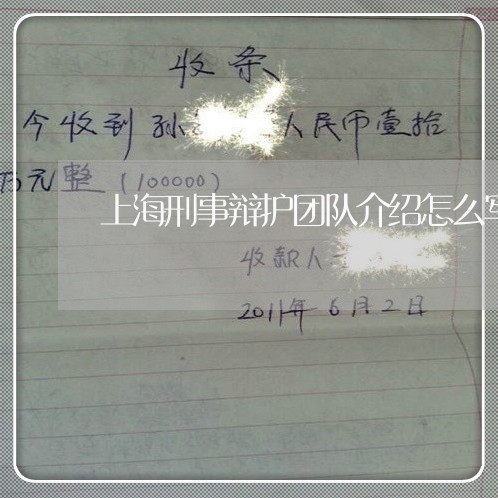 收条
今收到孙 人民币壹拾
万元整(100000)
上海刑事辩护团队介绍怎么写
收款人
2011年6月2日